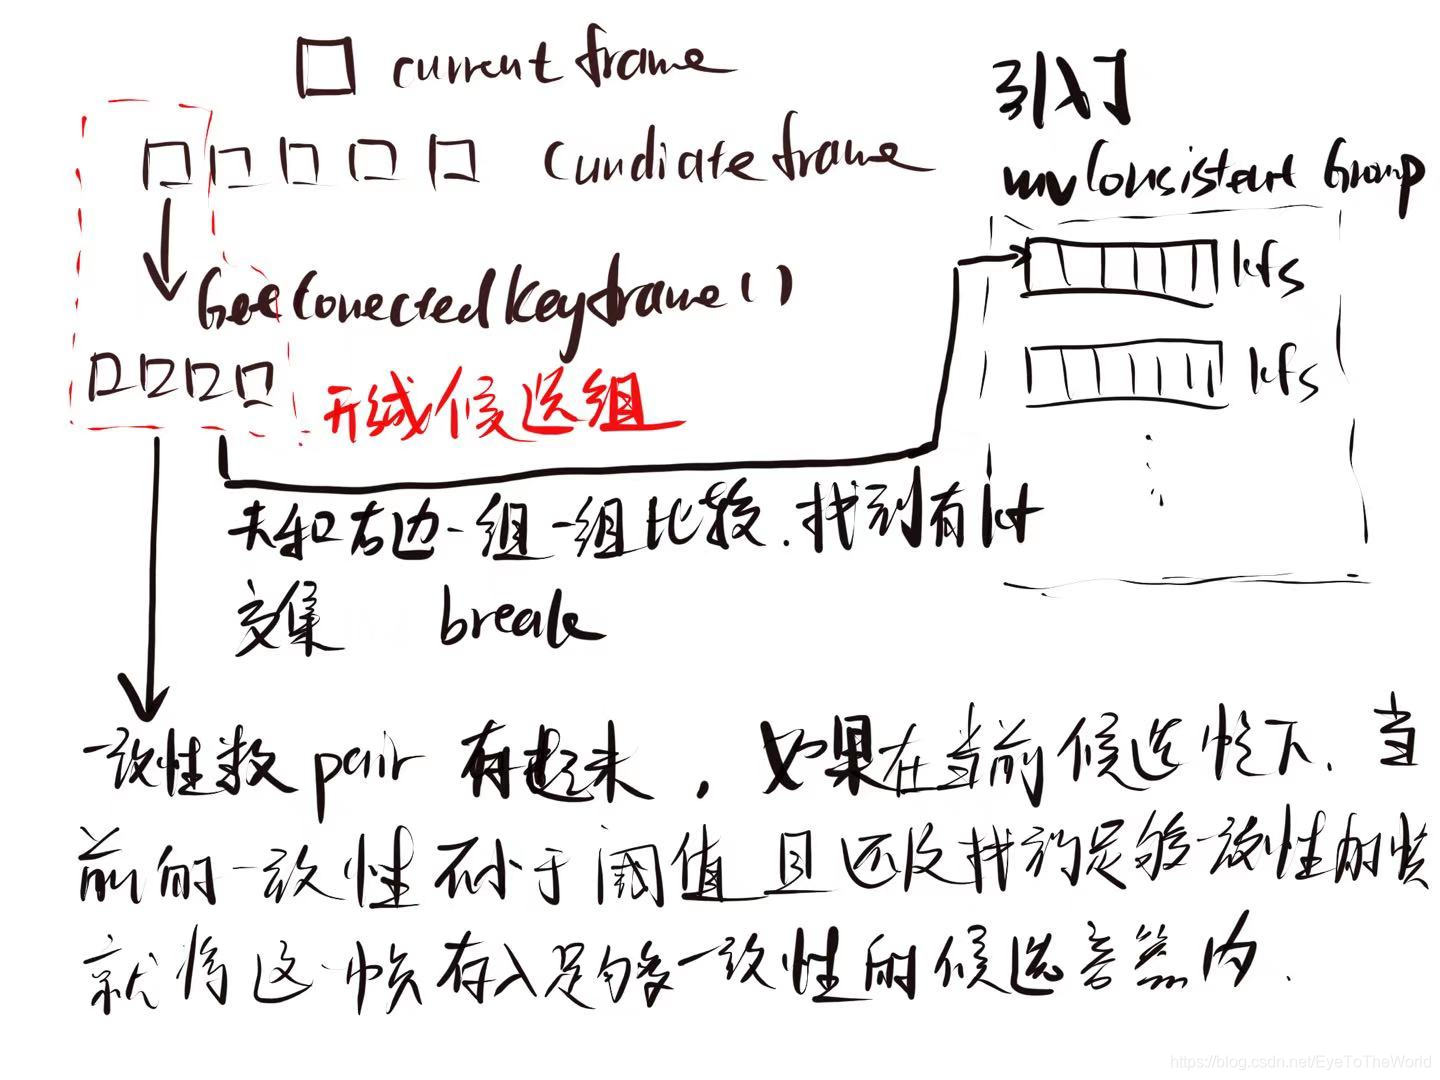 current frame
引入
Cundiate frame
mvConsistent Group
kfs
GetConectedKeyframe()
kfs
形成候选组
去和右边一组一组比较.找到有kf
交集 break
一致性数 pair 存起来，如果在当前候选帧下、当
前的一致性不小于阈值 且 还没找到足够一致性的帧
就将这一帧存入足够一致性的候选容器内.
https://blog.csdn.net/EyeToTheWorld